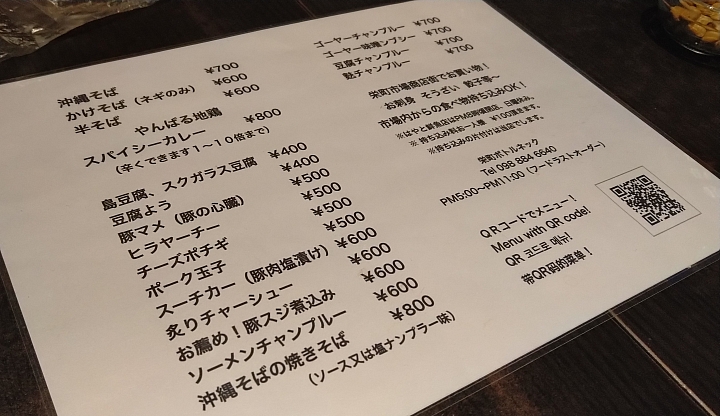 沖縄そば ¥700
かけそば（ネギのみ） ¥600
半そば ¥600
やんばる地鶏
スパイシーカレー ¥800
（辛くできます１～１０倍まで）
島豆腐、スクガラス豆腐 ¥400
豆腐よう ¥400
豚マメ（豚の心臓） ¥500
ヒラヤーチー ¥500
チーズポチギ ¥500
ポーク玉子 ¥500
スーチカー（豚肉塩漬け） ¥600
炙りチャーシュー ¥600
お薦め！豚スジ煮込み ¥600
ソーメンチャンプルー ¥600
沖縄そばの焼きそば ¥800
（ソース又は塩ナンプラー味）
ゴーヤーチャンプルー ¥700
ゴーヤー味噌ンブシー ¥700
豆腐チャンプルー ¥700
麩チャンプルー ¥700
栄町市場商店街でお買い物！
お刺身 そうざい 餃子等～
市場内からの食べ物持ち込みOK！
※はやと鮮魚店はPM8時頃閉店、日曜休み。
※ 持ち込み料お一人様 ¥100頂きます。
※持ち込みの片付けは当店でします。
栄町ボトルネック
Tel 098 884 6640
PM5:00~PM11:00（フードラストオーダー）
ＱＲコードでメニュー！
Menu with QR code!
QR 코드로 메뉴!
带QR码的菜单！